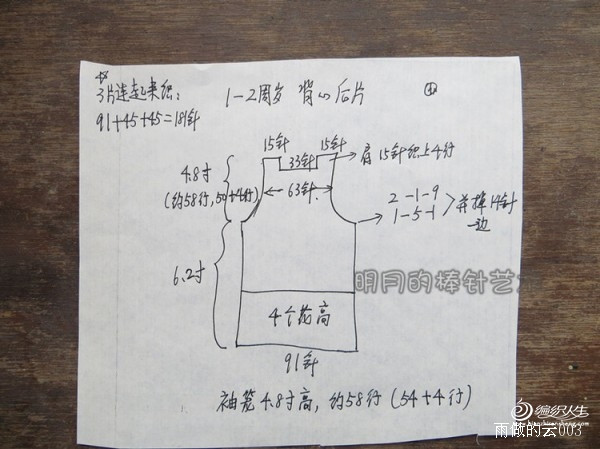 3片连起来织:
91+45+45=181针
1-2周岁 背心后片
①
15针
15针
33针
肩15针织上4行
4.8寸
(约58行,54+4行)
63针
2-1-9
1-5-1
并掉14针
一边
6.2寸
明月的棒针艺
4个花高
91针
袖笼4.8寸高,约58行(54+4行)
编织人生
雨做的云003